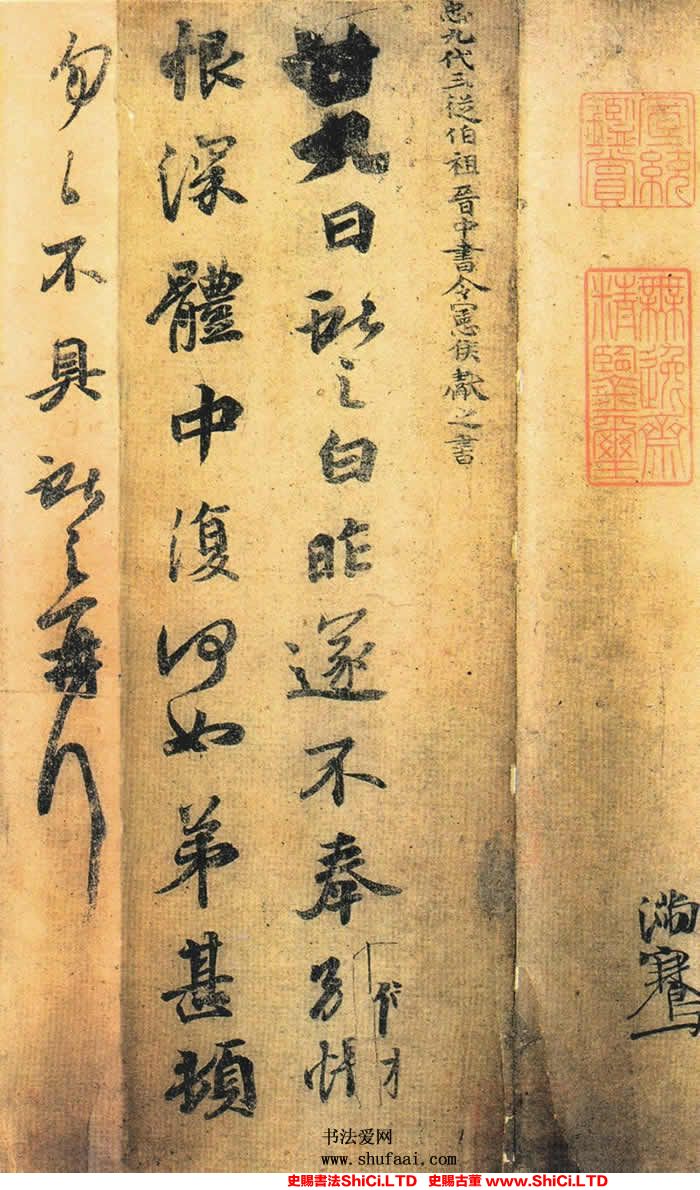 宣統鑒賞
無逸齋精鑒璽
滿騫
九代三從伯祖晉中書令憲侯獻之書
廿九日獻之白昨遂不奉別悵
恨深體中復何如弟甚頓
勿〻不具獻之再拜
书法爱网
www.shufaai.com
史賜書法ShiCi.LTD 史賜古董 www.ShiCi.LTD